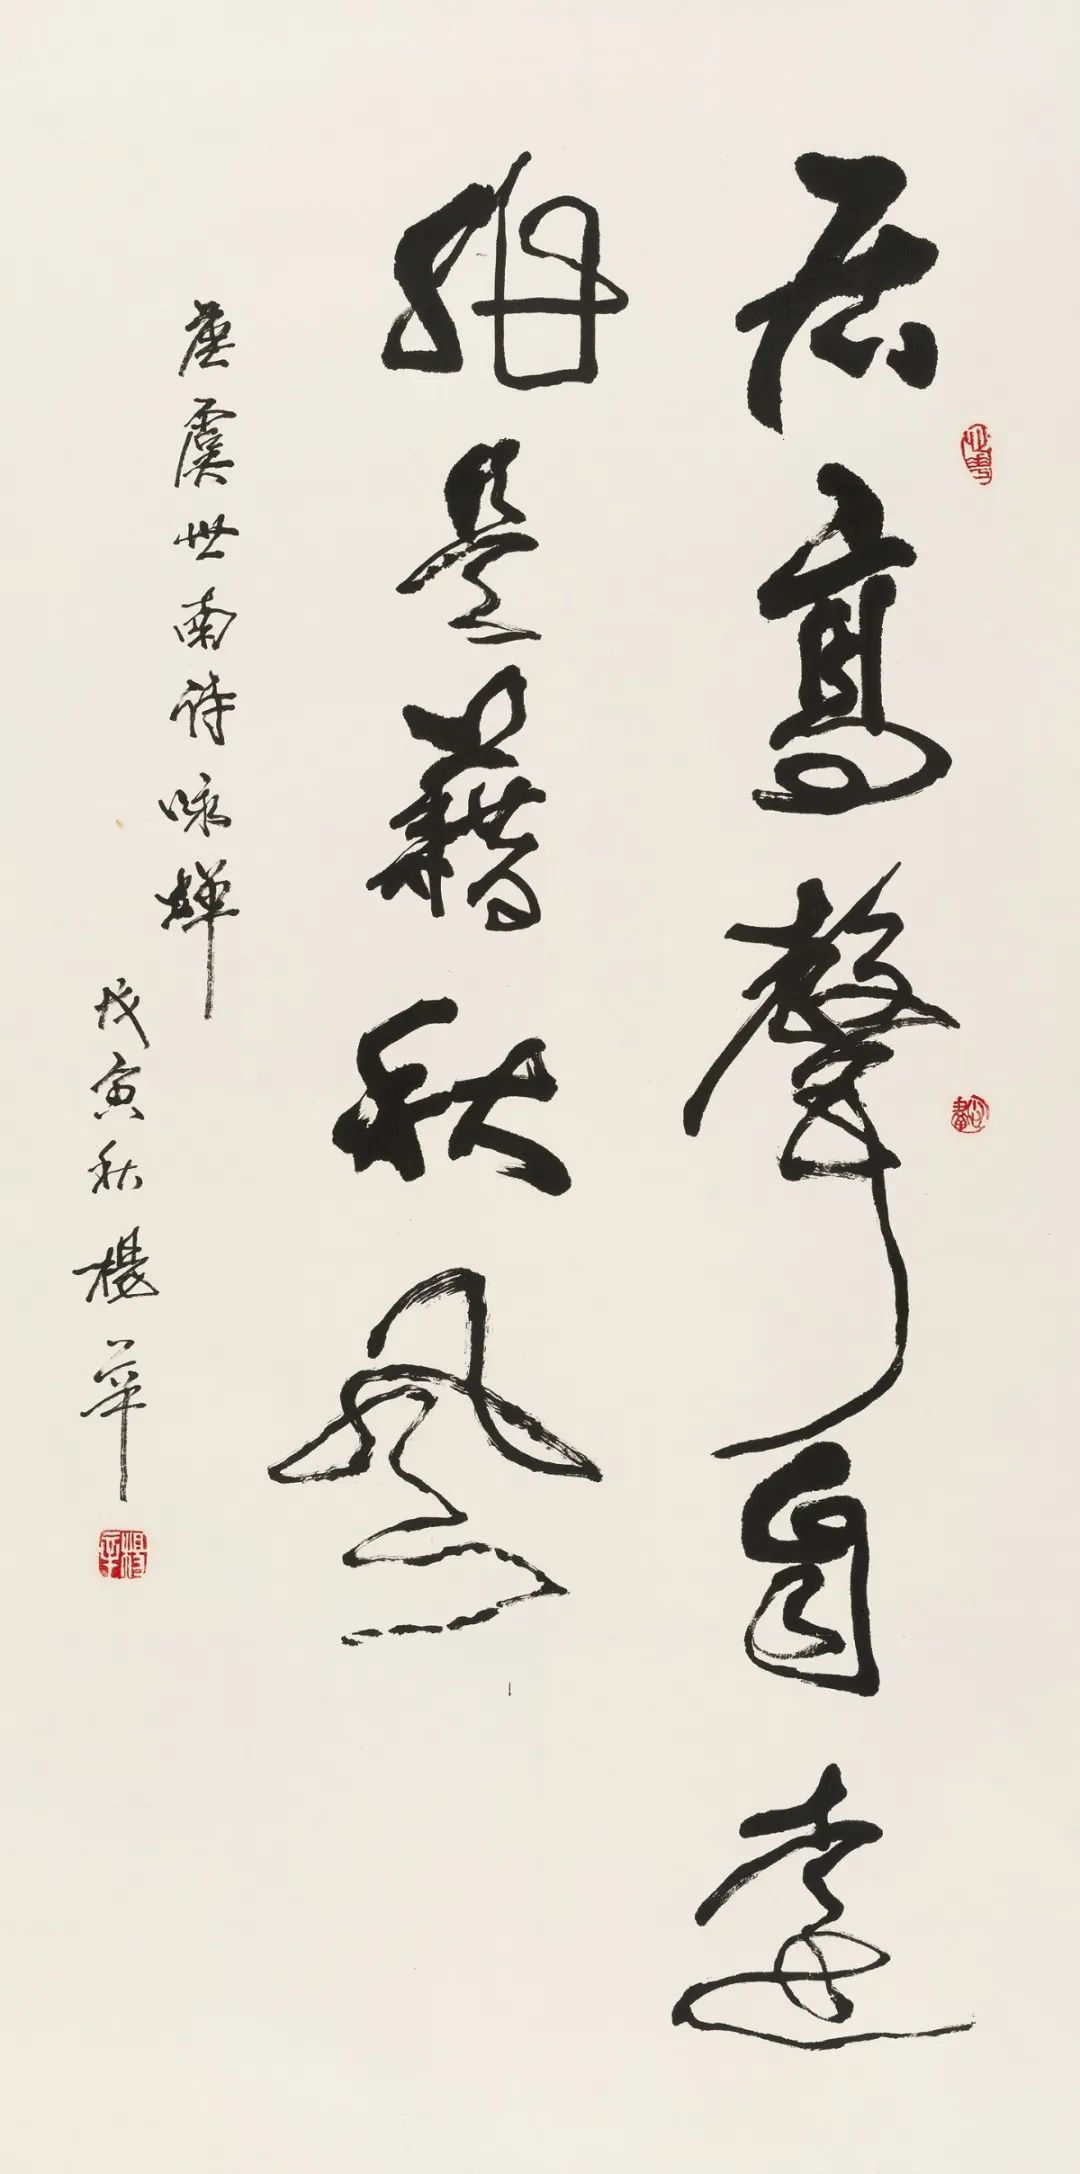 居高聲自遠
非是藉秋風
唐虞世南詩咏蟬
戊寅秋楊辛
楊辛